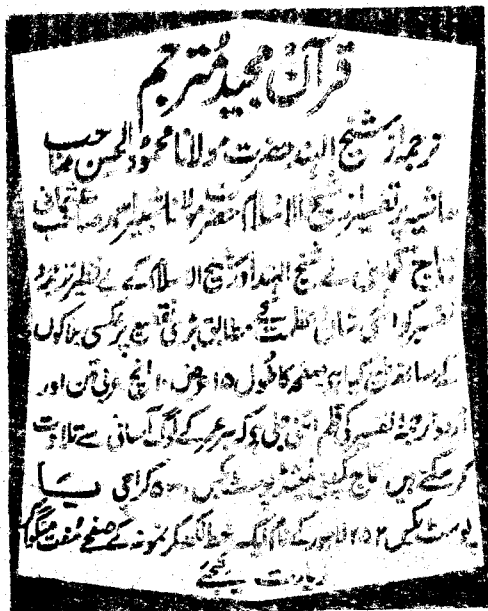 قرآن مجید مترجم
ترجمہ از شیخ الہند حضرت مولانا محمود الحسن صاحب
حاشیہ پر تفسیر از شیخ الاسلام حضرت مولانا شبیر احمد صاحب عثمانی
تاج کمپنی نے شیخ الہند اور شیخ الاسلام کے بے نظیر ترجمہ و
تفسیر کو انکی شان عظمت کے مطابق بڑی تقطیع پر عکسی بلاکوں
کے ساتھ طبع کیا ہے صفحہ کا طول ۱۵ عرض ۱۰ انچ عربی متن اور
اردو ترجمہ تفسیر کی قلم اتنی جلی کہ ہر عمر کے لوگ آسانی سے تلاوت
کر سکتے ہیں تاج کمپنی لمیٹڈ پوسٹ بکس ۵۳۰ کراچی یا
پوسٹ بکس ۲۵۲ لاہور کے نام ایک خط لکھکر نمونہ کے صفحے مفت منگوا کر
زیارت کیجئے